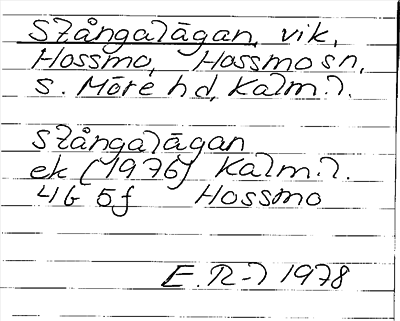 Stångalågan, vik,
Hossmo, Hossmo sn,
S. Möre hd, Kalm. l.
Stångalågan
ek (1976) Kalm. l.
4G 5f Hossmo
E. R-l 1978